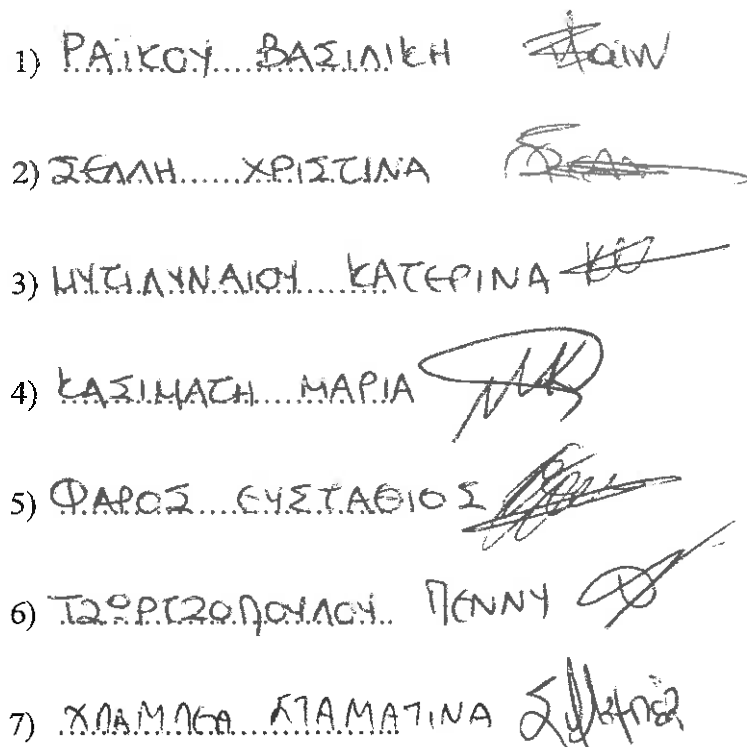 1) ΡΑΪΚΟΥ ΒΑΣΙΛΙΚΗ
2) ΣΕΛΛΗ ΧΡΙΣΤΙΝΑ
3) ΜΥΤΙΛΥΝΑΙΟΥ ΚΑΤΕΡΙΝΑ
4) ΚΑΣΙΜΑΤΗ ΜΑΡΙΑ
5) ΦΑΡΟΣ ΕΥΣΤΑΘΙΟΣ
6) ΤΖΩΡΤΖΟΠΟΥΛΟΥ ΠΕΝΝΥ
7) ΣΤΑΜΑΤΙΝΑ